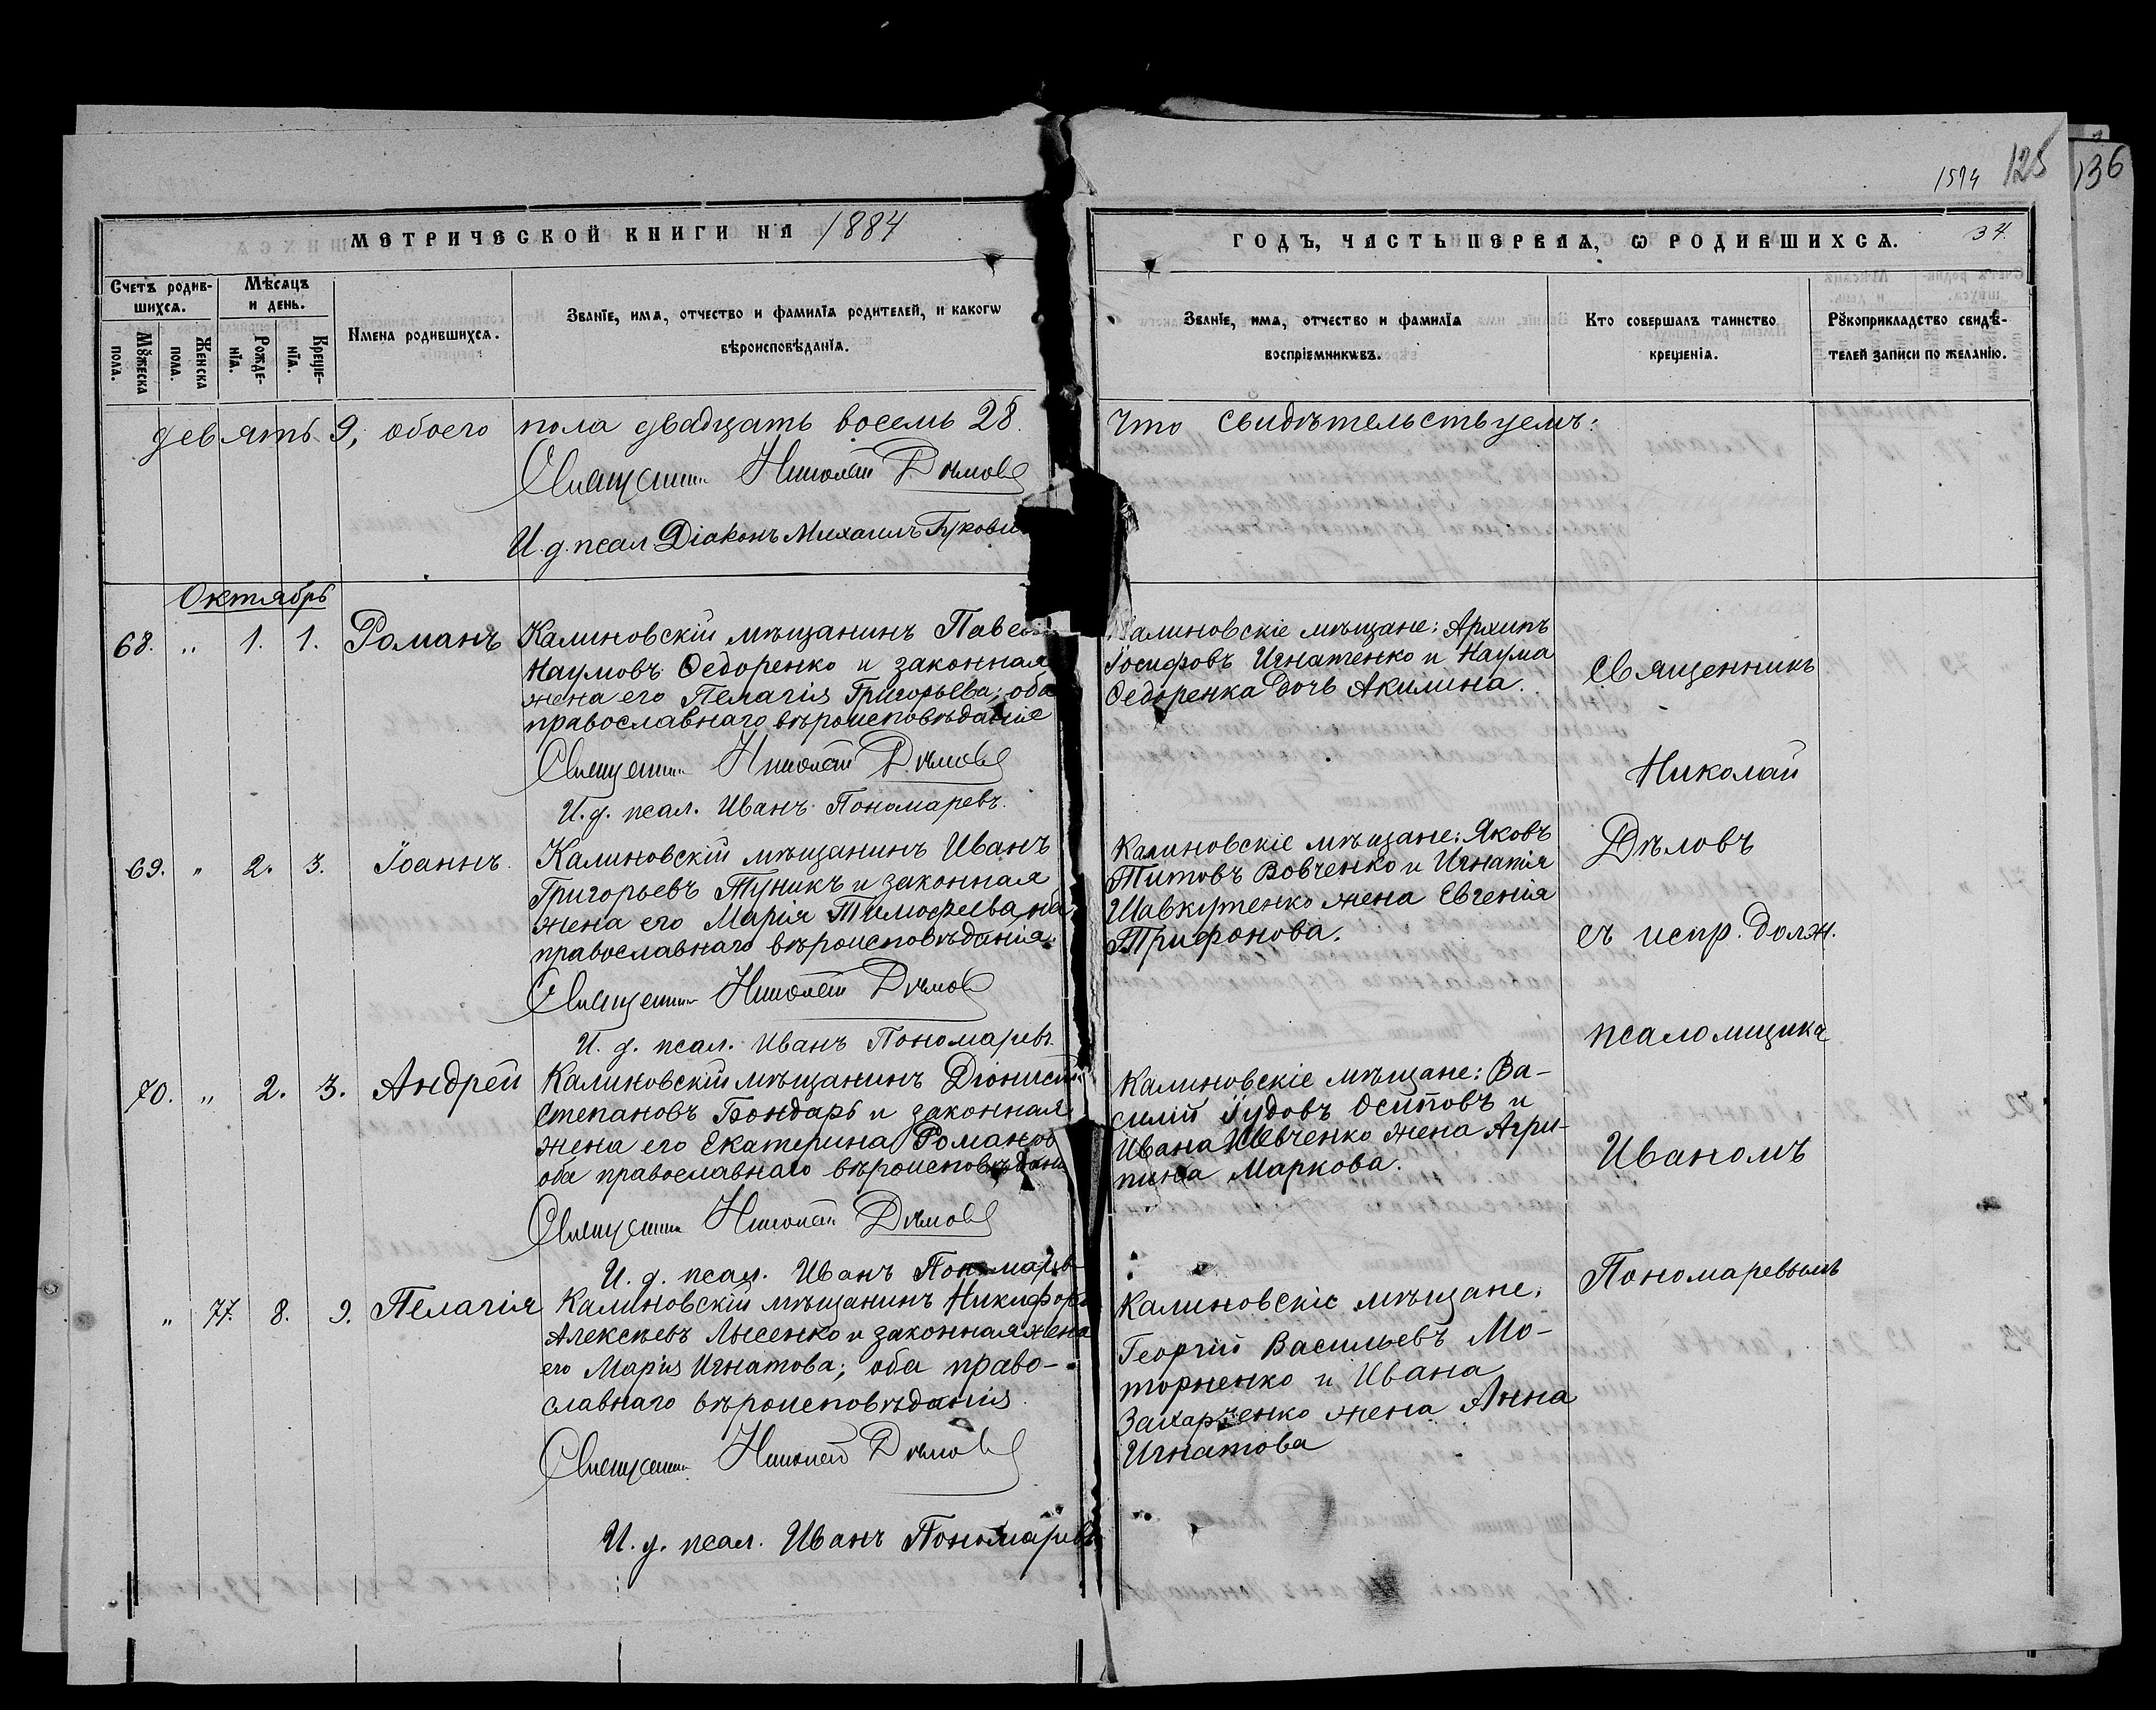 1594 125 136
МЕТРИЧЕСКОЙ КНИГИ НА 1884
ГОДЪ, ЧАСТЬ ПЕРВАЯ, Ѡ РОДИВШИХСѦ. 34.
Счетъ родив-
шихсѧ.
Мꙋжеска
пола.
Женска
пола.
Мѣсѧцъ
и день.
Рожде-
нїѧ.
Креще-
нїѧ.
Имена родившихсѧ.
Званїе, имѧ, отчество и фамилїѧ родителей, и какогѡ
вѣроисповѣданїѧ.
Званїе, имѧ, отчество и фамилїѧ
воспрїемникѡвъ.
Кто совершалъ таинство
крещенїѧ.
Рꙋкоприкладство свидѣ-
телей записи по желанїю.
девять 9, обоего пола двадцать восемь 28.
Что свидѣтельствуемъ:
Священникъ Николай Дѣловъ
И. д. псал Діаконъ Михаилъ
Октябрь
68. " 1. 1. Романъ
Калиновскій мѣщанинъ Павелъ
Наумовъ Ѳедоренко и законная
жена его Пелагія Григорьева; оба
православнаго вѣроисповѣданіе
Священникъ Николай Дѣловъ
И. д. псал. Иванъ Пономаревъ.
Калиновскіе мѣщане: Архипъ
Іосифовъ Игнатенко и Наума
Ѳедоренка дочь Акилина.
69. " 2. 3. Іоаннъ.
Калиновскій мѣщанинъ Иванъ
Григорьевъ Туникъ и законная
жена его Марія Тимофеева, оба
православнаго вѣроисповѣданія.
Священникъ Николай Дѣловъ
И. д. псал. Иванъ Пономаревъ.
Калиновскіе мѣщане: Яковъ
Титовъ Вовченко и Игнатія
Шавкутенко жена Евгенія
Трифонова.
70. " 2. 3. Андрей
Калиновскій мѣщанинъ Діонисій
Степановъ Бондарь и законная
жена его Екатерина Романов
оба православнаго вѣроисповѣдані
Священникъ Николай Дѣловъ
И. д. псал. Иванъ Пономаревъ
Калиновскіе мѣщане: Ва-
силій Іудовъ Осиповъ и
Ивана Шевченко жена Агри-
пина Маркова.
" 77. 8. 9. Пелагія
Калиновскій мѣщанинъ Никифоръ
Алексѣевъ Лысенко и законная жена
его Марія Игнатова; оба право-
славнаго вѣроисповѣданія.
Священникъ Николай Дѣловъ
И. д. псал. Иванъ Пономаревъ
Калиновскіе мѣщане:
Георгій Васильевъ Мо-
торненко и Ивана
Захарченко жена Анна
Игнатова
Священникъ
Николай
Дѣловъ
съ испр. долж.
псаломщика
Иваномъ
Пономаревымъ